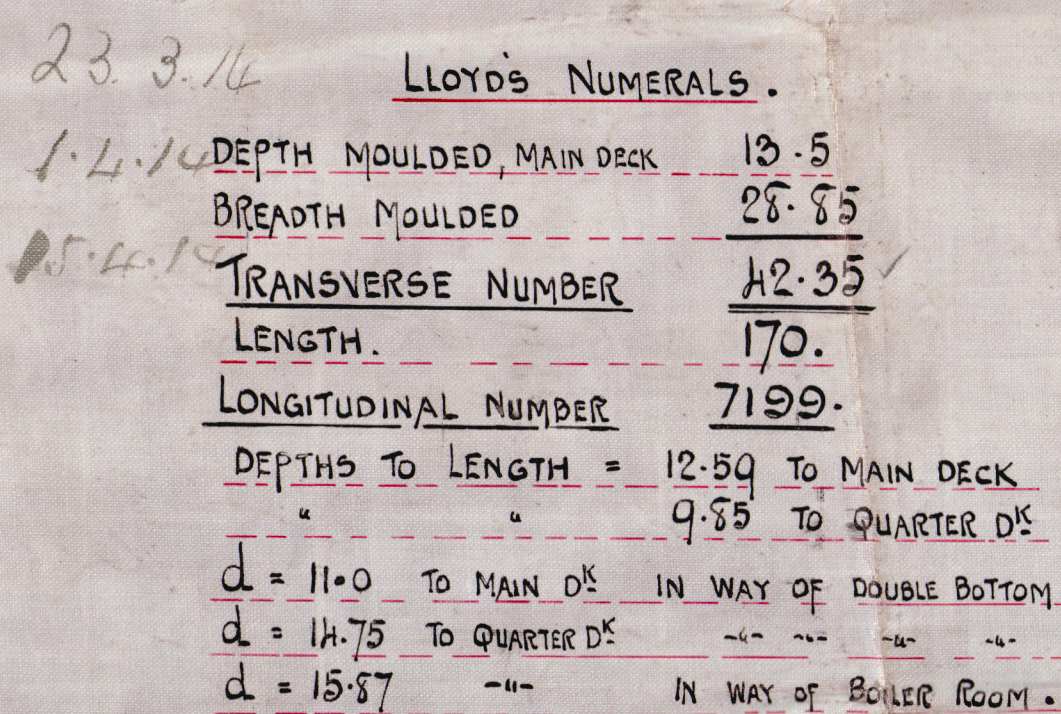 23.3.14
LLOYD'S NUMERALS.
1.4.14
DEPTH MOULDED, MAIN DECK 13.5
BREADTH MOULDED 28.85
15.4.14
TRANSVERSE NUMBER 42.35 ✓
LENGTH. 170.
LONGITUDINAL NUMBER 7199.
DEPTHS TO LENGTH = 12.59 TO MAIN DECK
" " 9.85 TO QUARTER DK
d = 11.0 TO MAIN DK IN WAY OF DOUBLE BOTTOM
d = 14.75 TO QUARTER DK -"- -"- -"- -"-
d = 15.87 -"- IN WAY OF BOILER ROOM.